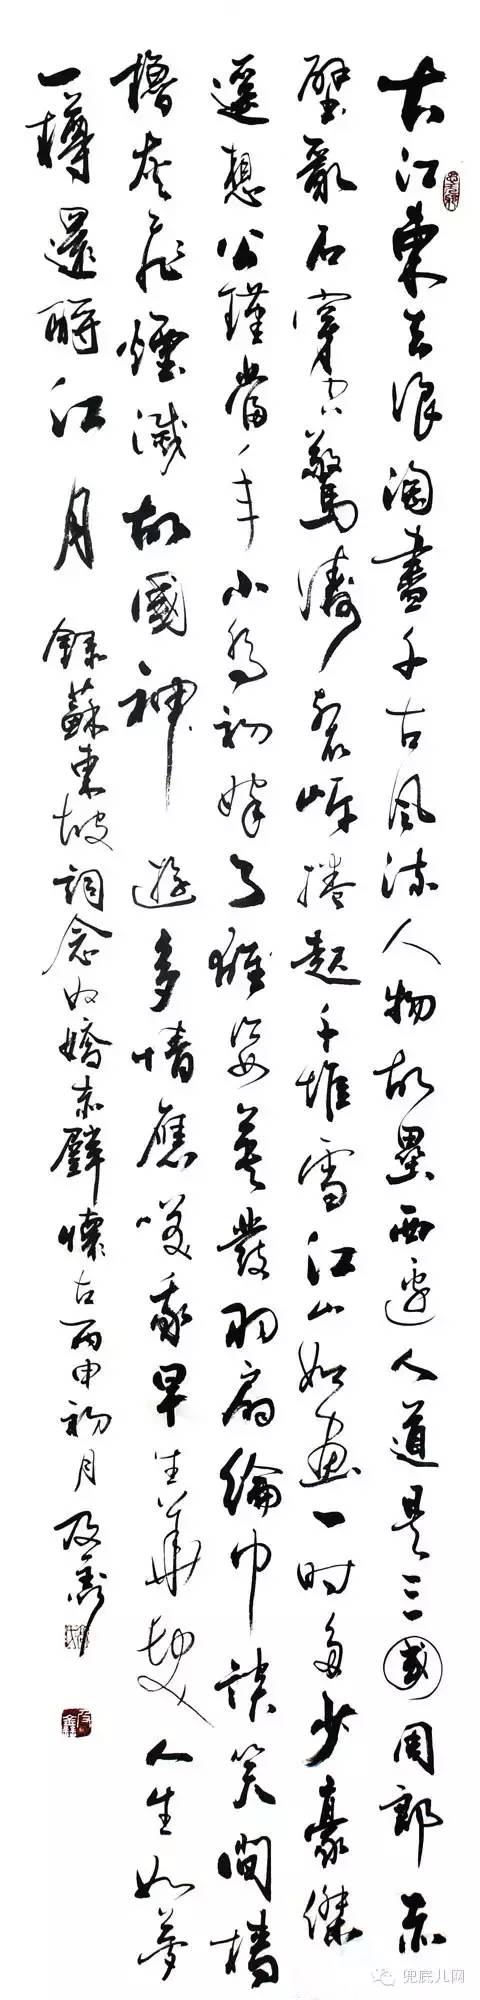 大江東去浪淘盡千古風流人物故壘西邊人道是三國周郎赤
壁亂石穿空驚濤裂岸捲起千堆雪江山如画一时多少豪傑
遥想公瑾當年小喬初嫁了雄姿英發羽扇綸巾談笑間檣
櫓灰飛煙滅故國神遊多情應笑我早生華髮人生如夢
一樽還酹江月 錄蘇東坡詞念奴嬌赤壁懷古丙申初月
兜底儿网